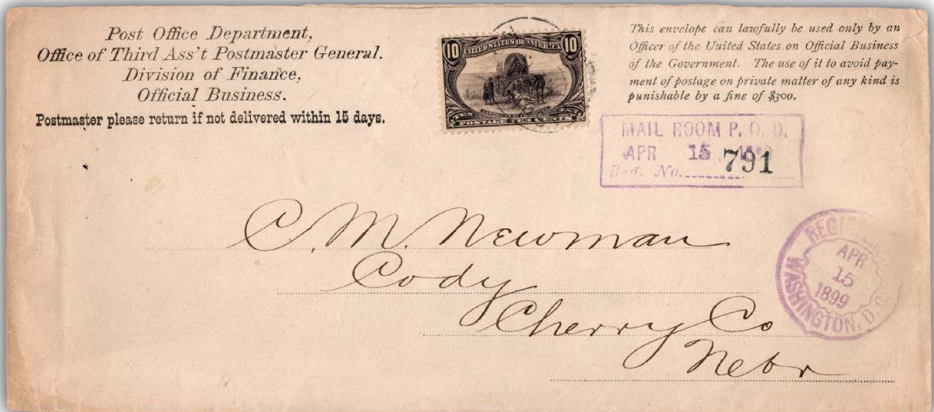 Post Office Department,
Office of Third Ass't Postmaster General.
Division of Finance,
Official Business.
Postmaster please return if not delivered within 15 days.
10 UNITED STATES OF AMERICA 10
This envelope can lawfully be used only by an
Officer of the United States on Official Business
of the Government. The use of it to avoid pay-
ment of postage on private matter of any kind is
punishable by a fine of $300.
MAIL ROOM P. O. D.
APR 15
Reg. No. 791
C. M. Newman
Cody
Cherry Co
Nebr
REGISTERED
APR
15
1899
WASHINGTON, D. C.